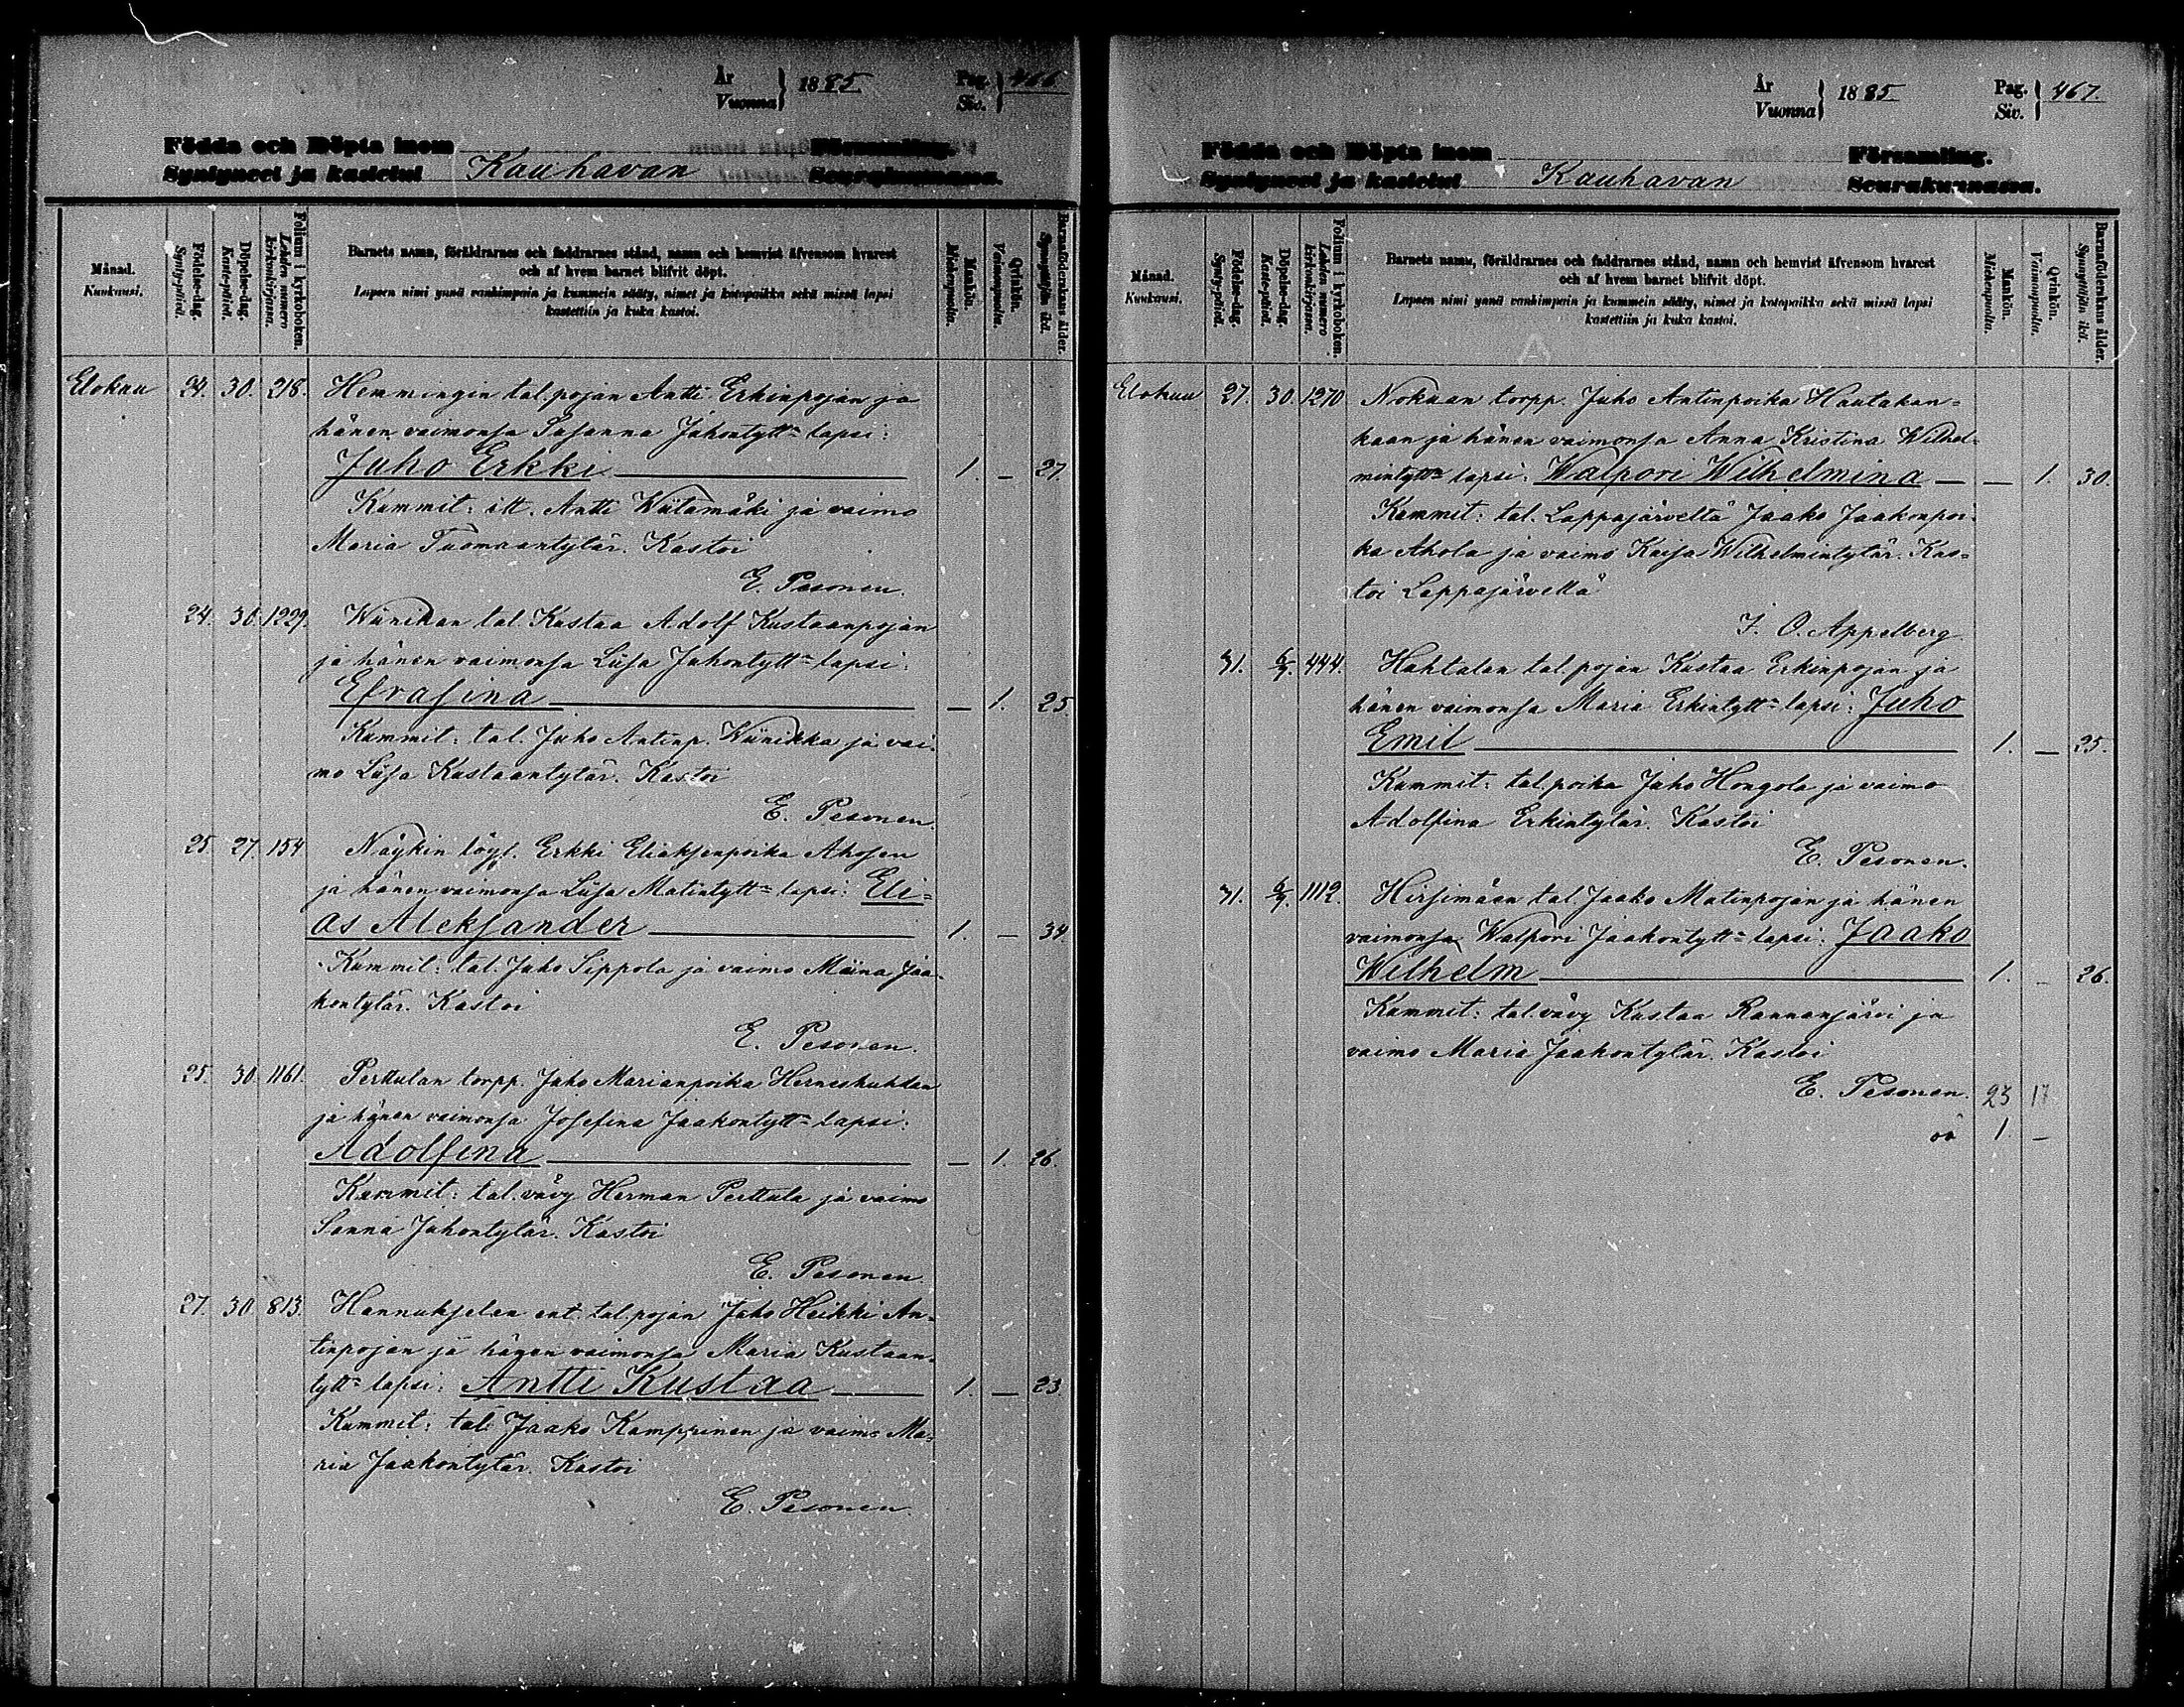 År
Vuonna } 1885.
Pag.
Siv. } 466
Födda och Döpta inom Församling.
Syntyneet ja kastetut Kauhavan Seurakunnassa.
Månad.
Kuukausi.
Födelse-dag.
Synty-päivä.
Döpelse-dag.
Kaste-päivä.
Folium i kyrkoboken.
Lehden numero kirkonkirjassa.
Barnets namn, föräldrarnes och faddrarnes stånd, namn och hemvist äfvensom hvarest
och af hvem barnet blifvit döpt.
Lapsen nimi ynnä vanhimpain ja kummein sääty, nimet ja kotopaikka sekä missä lapsi
kastettiin ja kuka kastoi.
Mankön.
Miehenpuolta.
Qvinkön.
Vaimonpuolta.
Barnaföderskans ålder.
Synnyttäjän ikä.
Elokuu 24. 30. 218. Hemmingin tal. pojan Antti Erkinpojan ja
hänen vaimonsa Susanna Juhontytt= lapsi:
Juho Erkki 1. — 27.
Kummit: itt. Antti Wiitamäki ja vaimo
Maria Tuomaantytär. Kastoi
E. Pesonen.
24. 30. 1229. Wiinikan tal. Kustaa Adolf Kustaanpojan
ja hänen vaimonsa Liisa Juhontytt= lapsi:
Efrasina — 1. 25.
Kummit: tal. Juho Antinp. Wiinikka ja vai-
mo Liisa Kustaantytär. Kastoi
E. Pesonen.
25. 27. 154. Näykin löyf. Erkki Eliaksenpoika Ahosen
ja hänen vaimonsa Liisa Matintytt= lapsi: Eli=
as Aleksander 1. — 34.
Kummit: tal. Juho Sippola ja vaimo Miina Jaa-
kontytär. Kastoi
E. Pesonen.
25. 30. 1161. Perttulan torpp. Juho Marianpoika Herneshuhdan
ja hänen vaimonsa Josefina Jaakontytt= lapsi:
Adolfina — 1. 26.
Kummit: tal. vävy Herman Perttula ja vaimo
Sanna Juhontytär. Kastoi
E. Pesonen.
27. 30. 813. Hannukselan ent. tal. pojan Juho Heikki An=
tinpojan ja hänen vaimonsa Maria Kustaan-
tytt= lapsi: Antti Kustaa 1. — 23.
Kummit: tal. Jaako Kamppinen ja vaimo Ma=
ria Jaakontytär. Kastoi
E. Pesonen.
År
Vuonna } 1885
Pag.
Siv. } 467.
Födda och Döpta inom Församling.
Syntyneet ja kastetut Kauhavan Seurakunnassa.
Månad.
Kuukausi.
Födelse-dag.
Synty-päivä.
Döpelse-dag.
Kaste-päivä.
Folium i kyrkoboken.
Lehden numero kirkonkirjassa.
Barnets namn, föräldrarnes och faddrarnes stånd, namn och hemvist äfvensom hvarest
och af hvem barnet blifvit döpt.
Lapsen nimi ynnä vanhimpain ja kummein sääty, nimet ja kotopaikka sekä missä lapsi
kastettiin ja kuka kastoi.
Mankön.
Miehenpuolta.
Qvinkön.
Vaimonpuolta.
Barnaföderskans ålder.
Synnyttäjän ikä.
Elokuu 27. 30. 1270 Nokuan torpp. Juho Antinpoika Hautakan=
kaan ja hänen vaimonsa Anna Kristina Wilhel-
mintytt= lapsi: Walpori Wilhelmina — 1. 30.
Kummit: tal. Lappajärveltä Jaako Jaakonpoi-
ka Ahola ja vaimo Kaisa Wilhelmintytär. Kas=
toi Lappajärvellä
J. O. Appelberg
31. 6/9. 444. Huhtalan tal. pojan Kustaa Erkinpojan ja
hänen vaimonsa Maria Erkintytt= lapsi: Juho
Emil 1. — 25.
Kummit: tal. poika Juho Hongola ja vaimo
Adolfina Erkintytär. Kastoi
E. Pesonen.
31. 6/9. 1112. Hirsimäen tal. Jaako Matinpojan ja hänen
vaimonsa Walpori Jaakontytt= lapsi: Jaako
Wilhelm 1. — 26.
Kummit: tal. vävy Kustaa Rannanjärvi ja
vaimo Maria Jaakontytär. Kastoi
E. Pesonen. 23 17
1. —